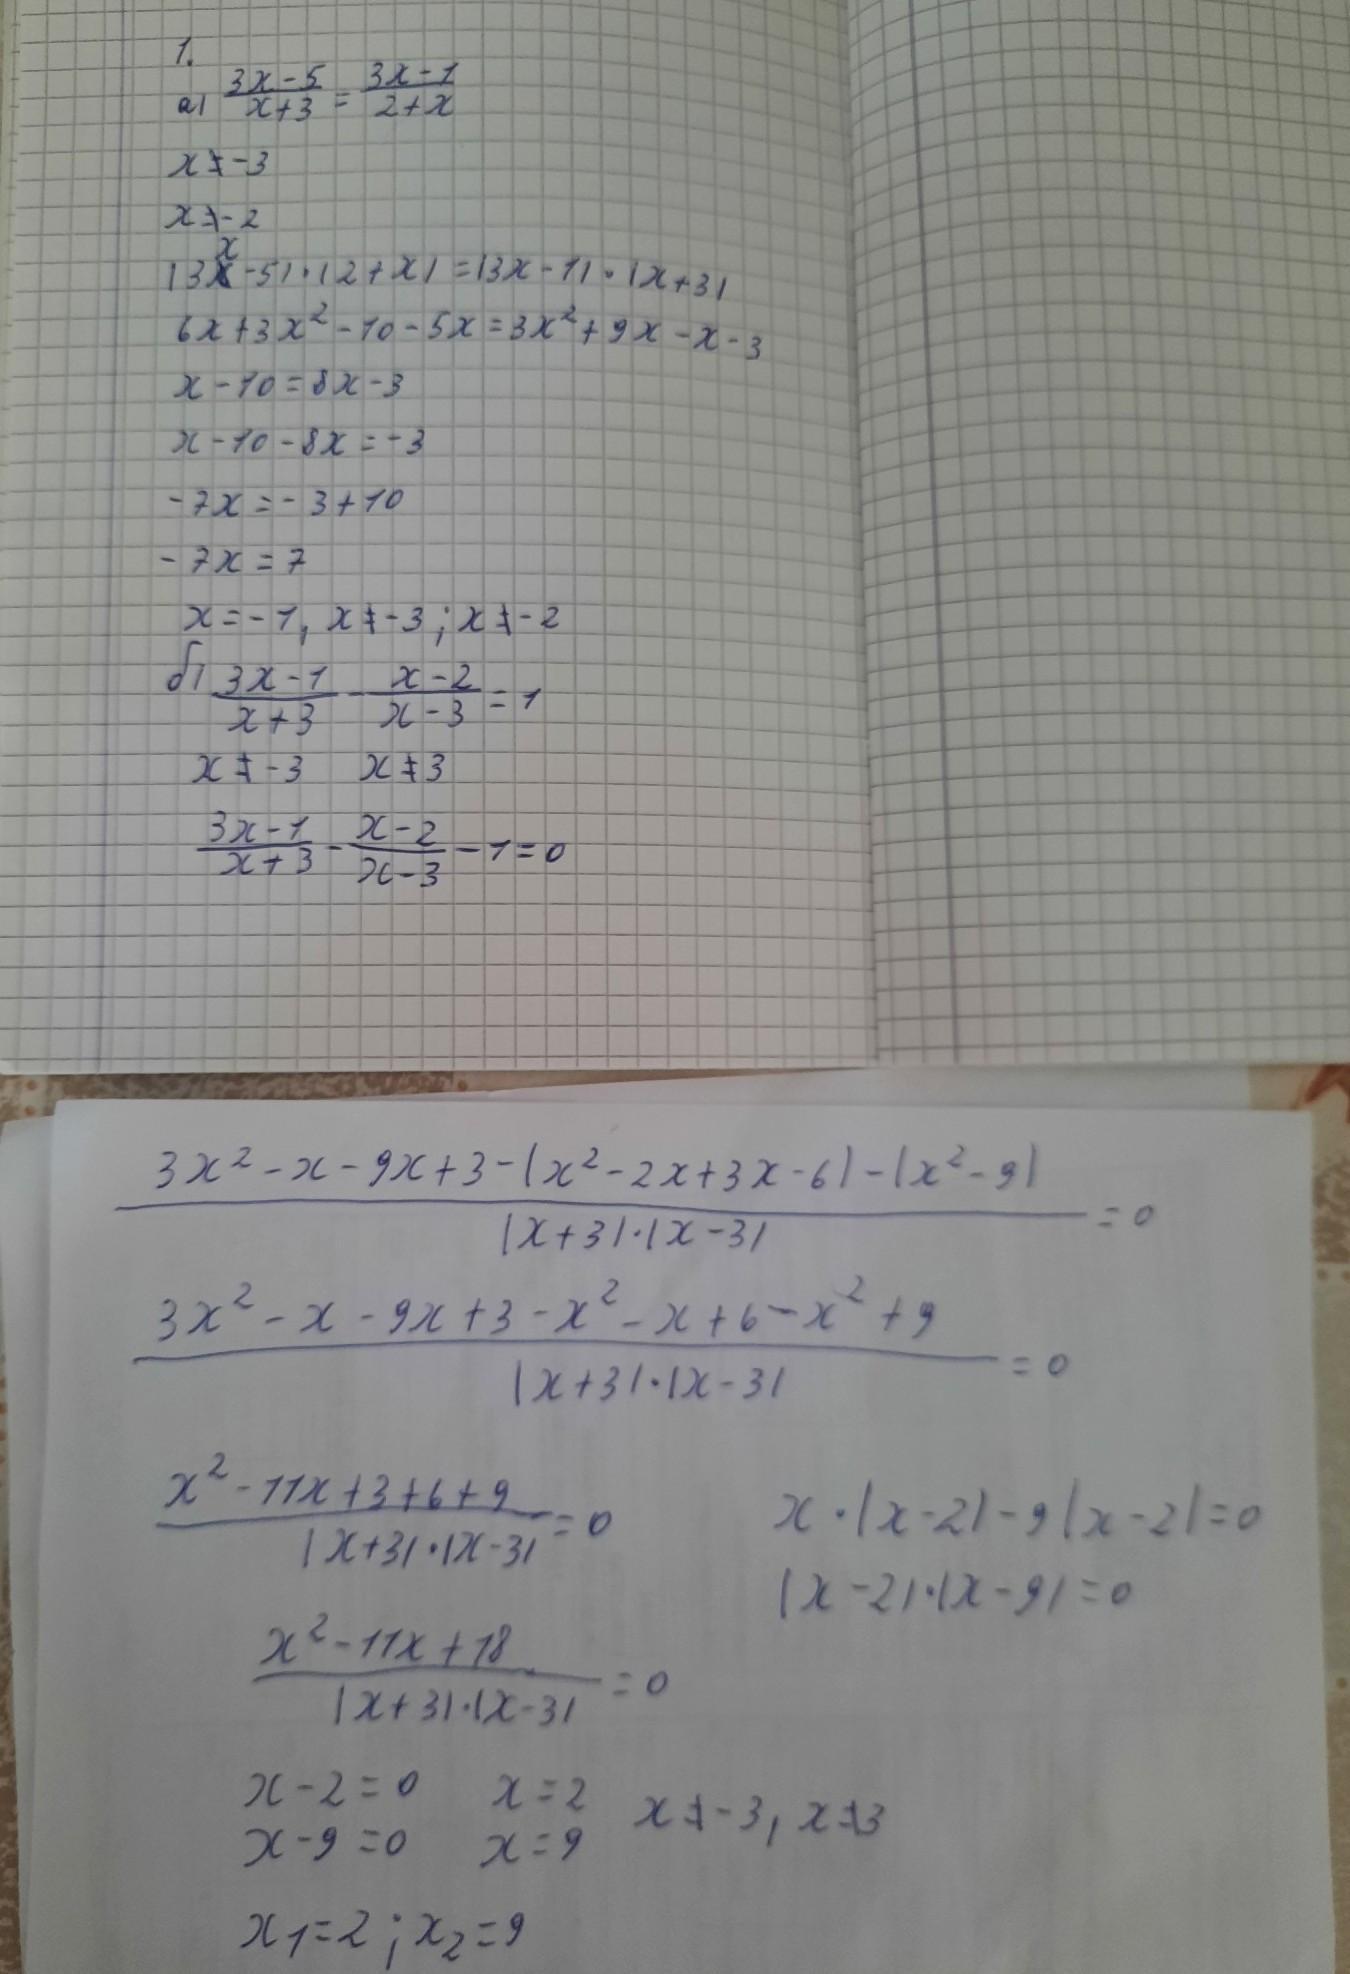 1.
а) (3x-5)/(x+3) = (3x-1)/(2+x)
x≠-3
x≠-2
(3x-5)·(2+x)=(3x-1)·(x+3)
6x+3x²-10-5x=3x²+9x-x-3
x-10=8x-3
x-10-8x=-3
-7x=-3+10
-7x=7
x=-1, x≠-3; x≠-2
б) (3x-1)/(x+3) - (x-2)/(x-3) = 1
x≠-3 x≠3
(3x-1)/(x+3) - (x-2)/(x-3) - 1 = 0
(3x²-x-9x+3-(x²-2x+3x-6)-(x²-9))/((x+3)·(x-3)) = 0
(3x²-x-9x+3-x²-x+6-x²+9)/((x+3)·(x-3)) = 0
(x²-11x+3+6+9)/((x+3)·(x-3)) = 0
x·(x-2)-9(x-2)=0
(x-2)·(x-9)=0
(x²-11x+18)/((x+3)·(x-3)) = 0
x-2=0 x=2
x-9=0 x=9
x≠-3, x≠3
x₁=2; x₂=9